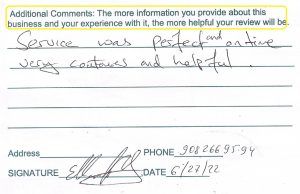 Additional Comments: The more information you provide about this
business and your experience with it, the more helpful your review will be.
Service was perfect and on time
very contaues and helpful.
Address PHONE 9082669594
SIGNATURE DATE 6/27/22